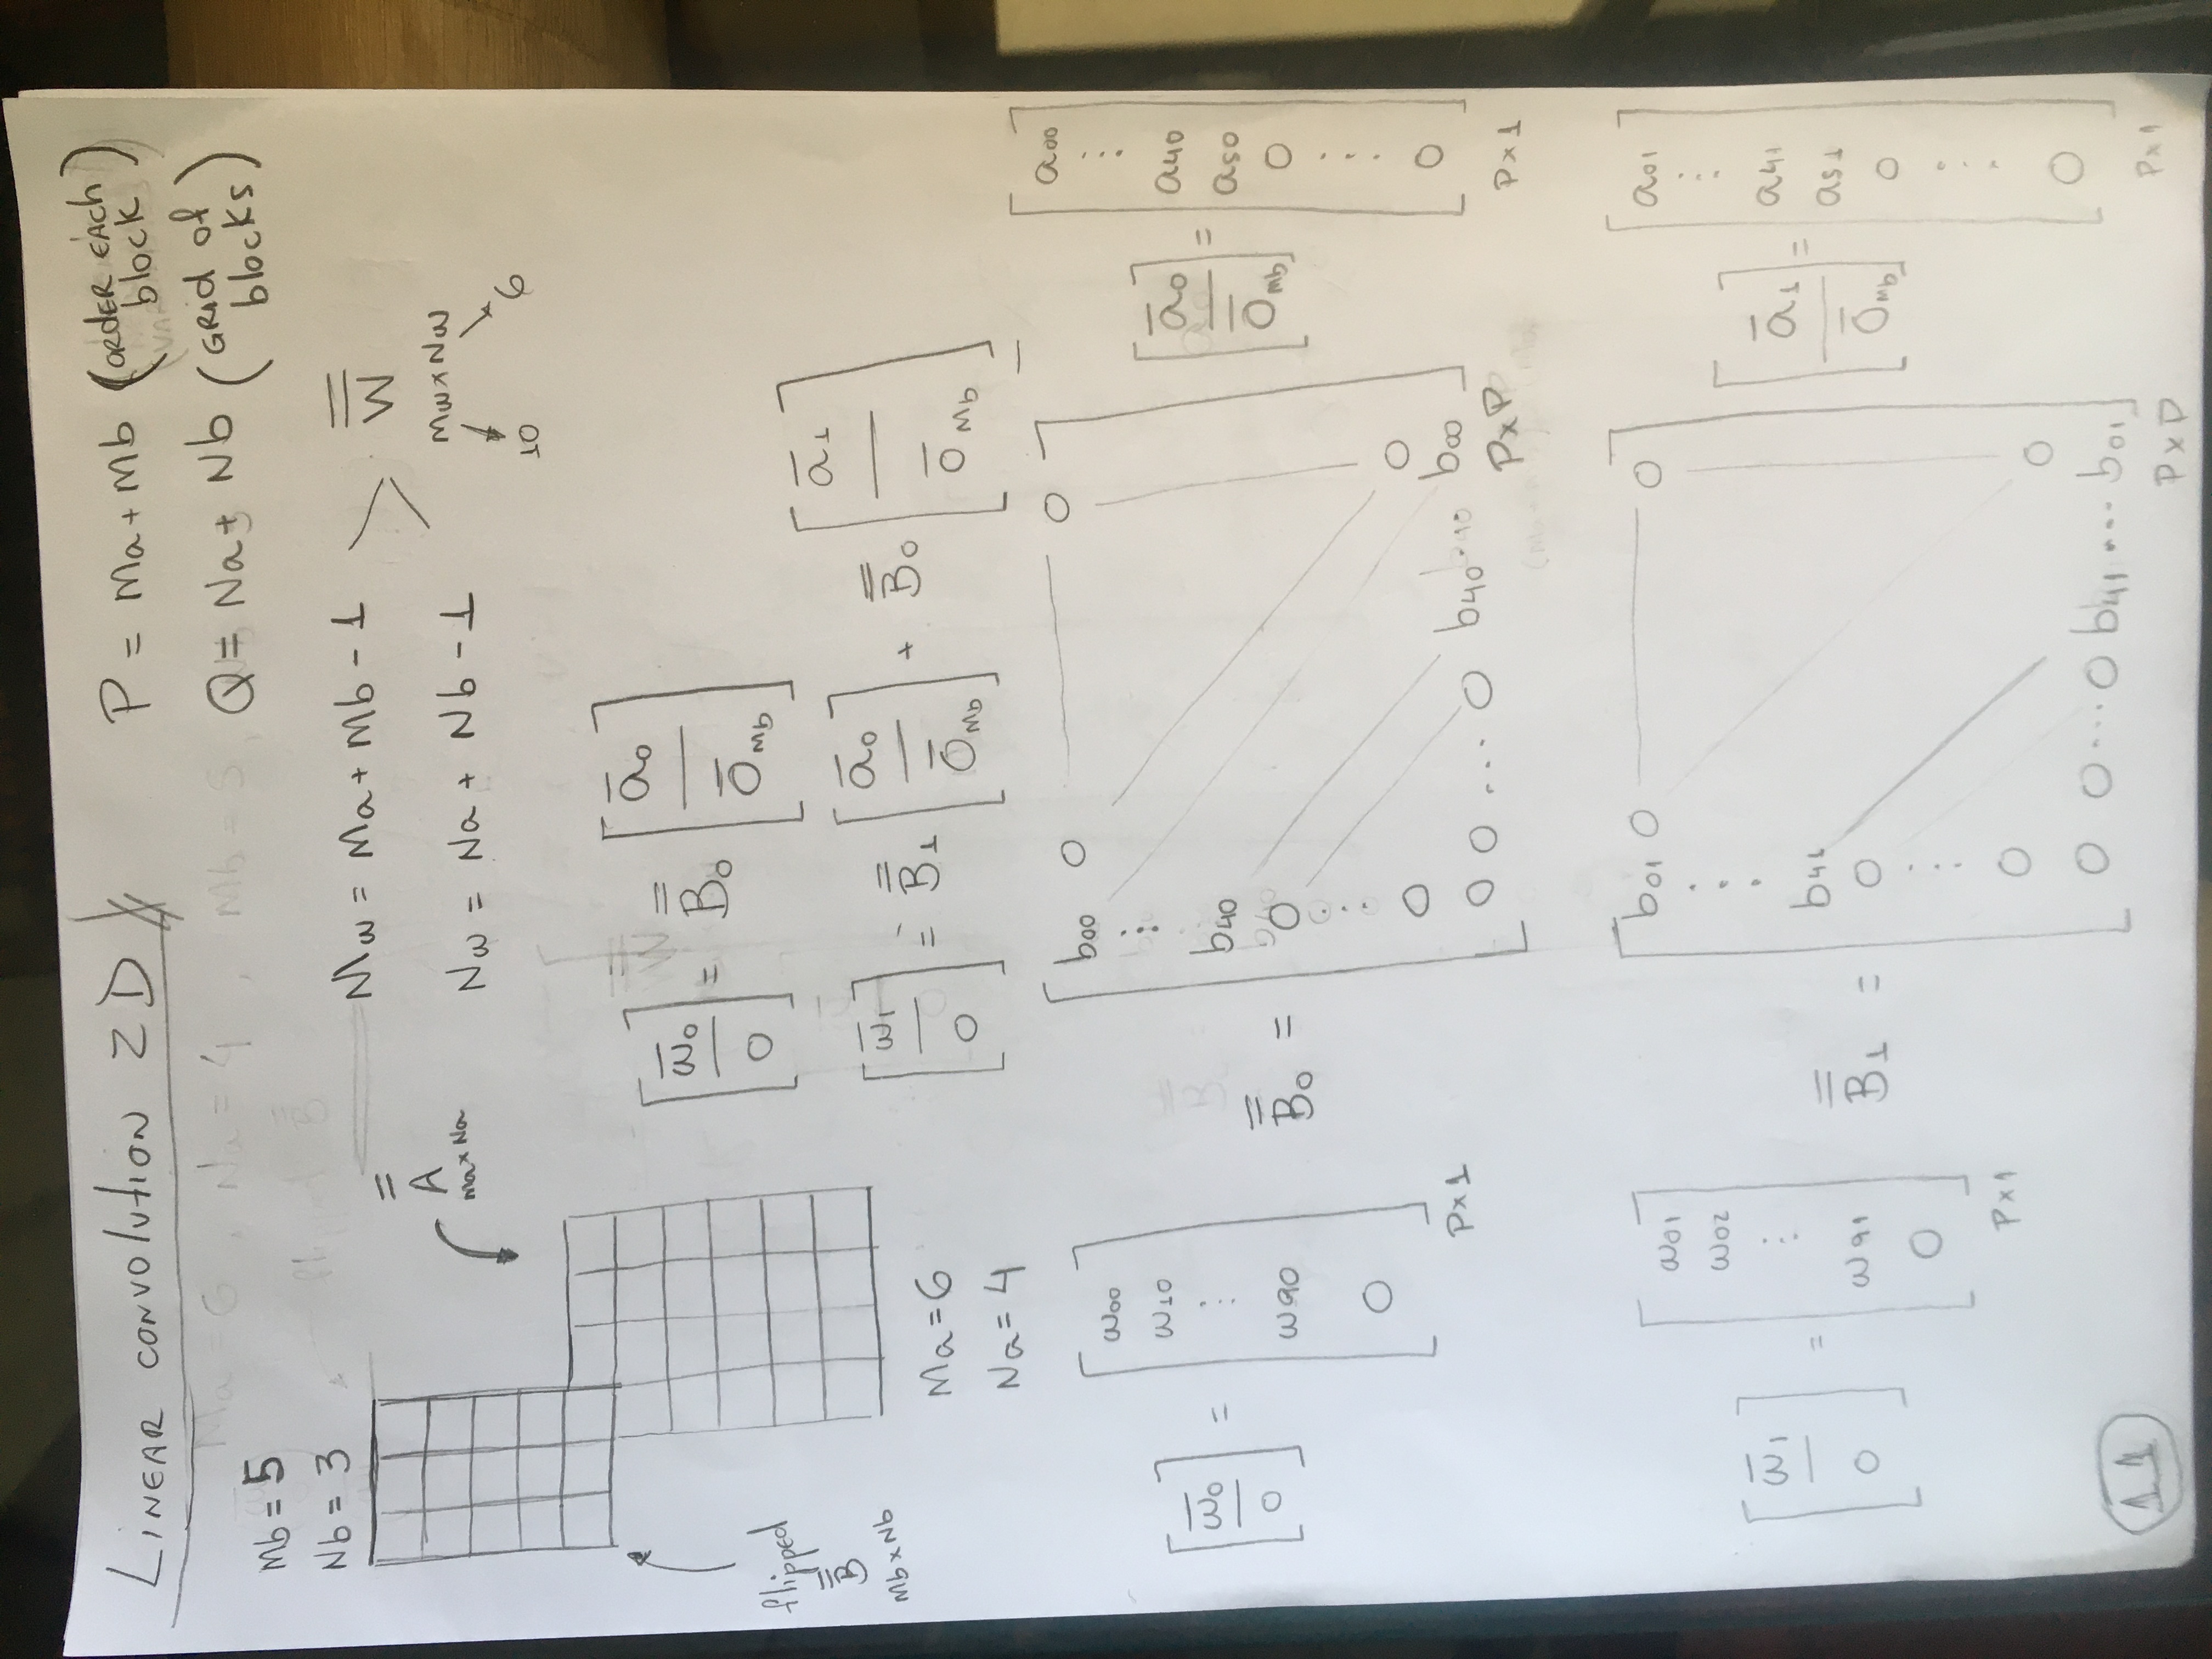 LINEAR CONVOLUTION 2D
P = Ma + Mb (ORDER EACH block)
Q = Na + Nb (GRID of blocks)
Mb = 5
Nb = 3
A
Ma×Na
Mw = Ma + Mb - 1
Nw = Na + Nb - 1
W
Mw×Nw
10 6
flipped
B
Mb×Nb
Ma=6
Na=4
[w0 | 0] = B0 [a0 | 0Mb]
[w1 | 0] = B1 [a0 | 0Mb] + B0 [a1 | 0Mb]
[w0 | 0] = [w00 w10 ... w90 0] P×1
B0 = [
b00 0 0
⋮
b40
0
⋮
0 0
0 0 ... 0 b40 ... b00
] P×P
[a0 | 0Mb] = [a00 ... a40 a50 0 ... 0] P×1
[w1 | 0] = [w01 w02 ... w91 0] P×1
B1 = [
b01 0 0
⋮
b41
0
⋮
0 0
0 0 ... 0 b41 ... b01
] P×P
[a1 | 0Mb] = [a01 ... a41 a51 0 ... 0] P×1
11